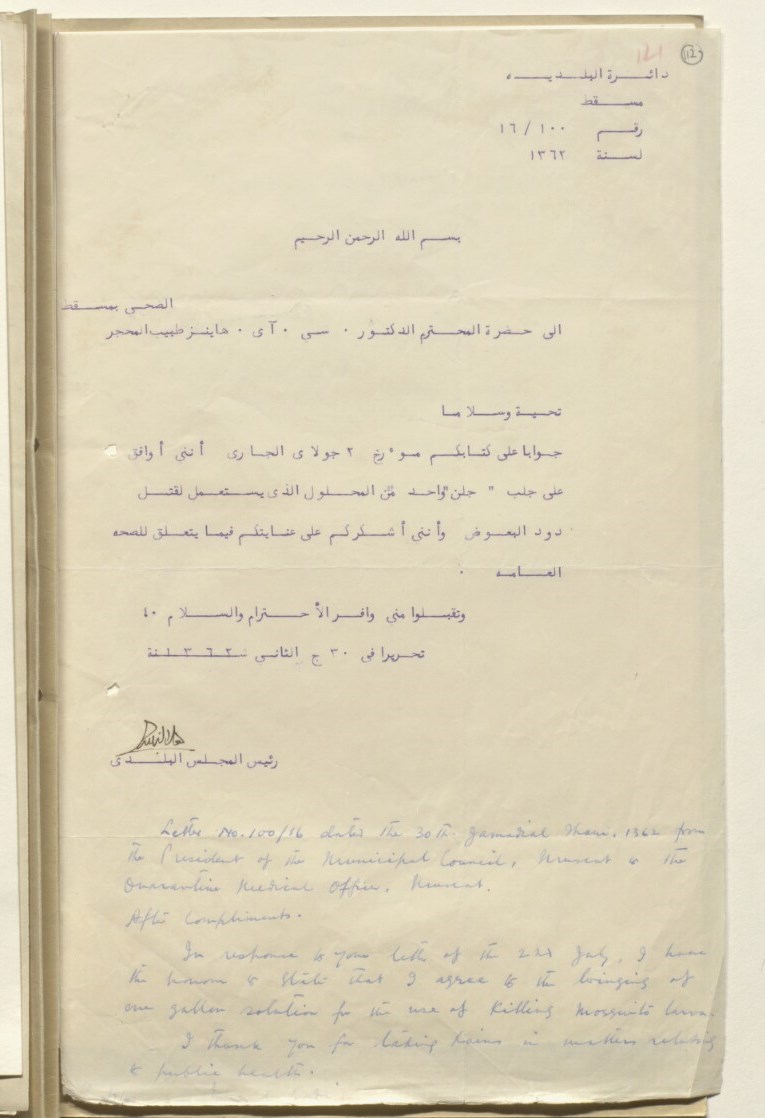 121
12
دائرة البلديه
مسقط
رقم ١٠٠ / ١٦
لسنة ١٣٦٢
بسم الله الرحمن الرحيم
الصحى بمسقط
الى حضرة المحترم الدكتور . سى . آى . هاينز طبيب المحجر
تحية وسلاما
جوابا على كتابكم موءرخ ٢ جولاى الجارى أننى أوافق
على جلب " جلن" واحد من المحلول الذى يستعمل لقتل
دود البعوض وأننى أشكركم على عنايتكم فيما يتعلق للصحه
العامه .
وتقبلوا منى وافر الأحترام والسلام ٤٠
تحريرا فى ٣٠ ج الثانى سنة ١٣٦٢
رئيس المجلس البلدى
Letter No. 100/16 dated the 30th Jamadial Thani, 1362 from
the President of the Municipal Council, Muscat to the
Quarantine Medical Officer, Muscat.
After Compliments.
In response to your letter of the 2nd July, I have
the honour to state that I agree to the bringing of
one gallon solution for the use of Killing Mosquito larva.
I thank you for taking pains in matters relating
to public health.